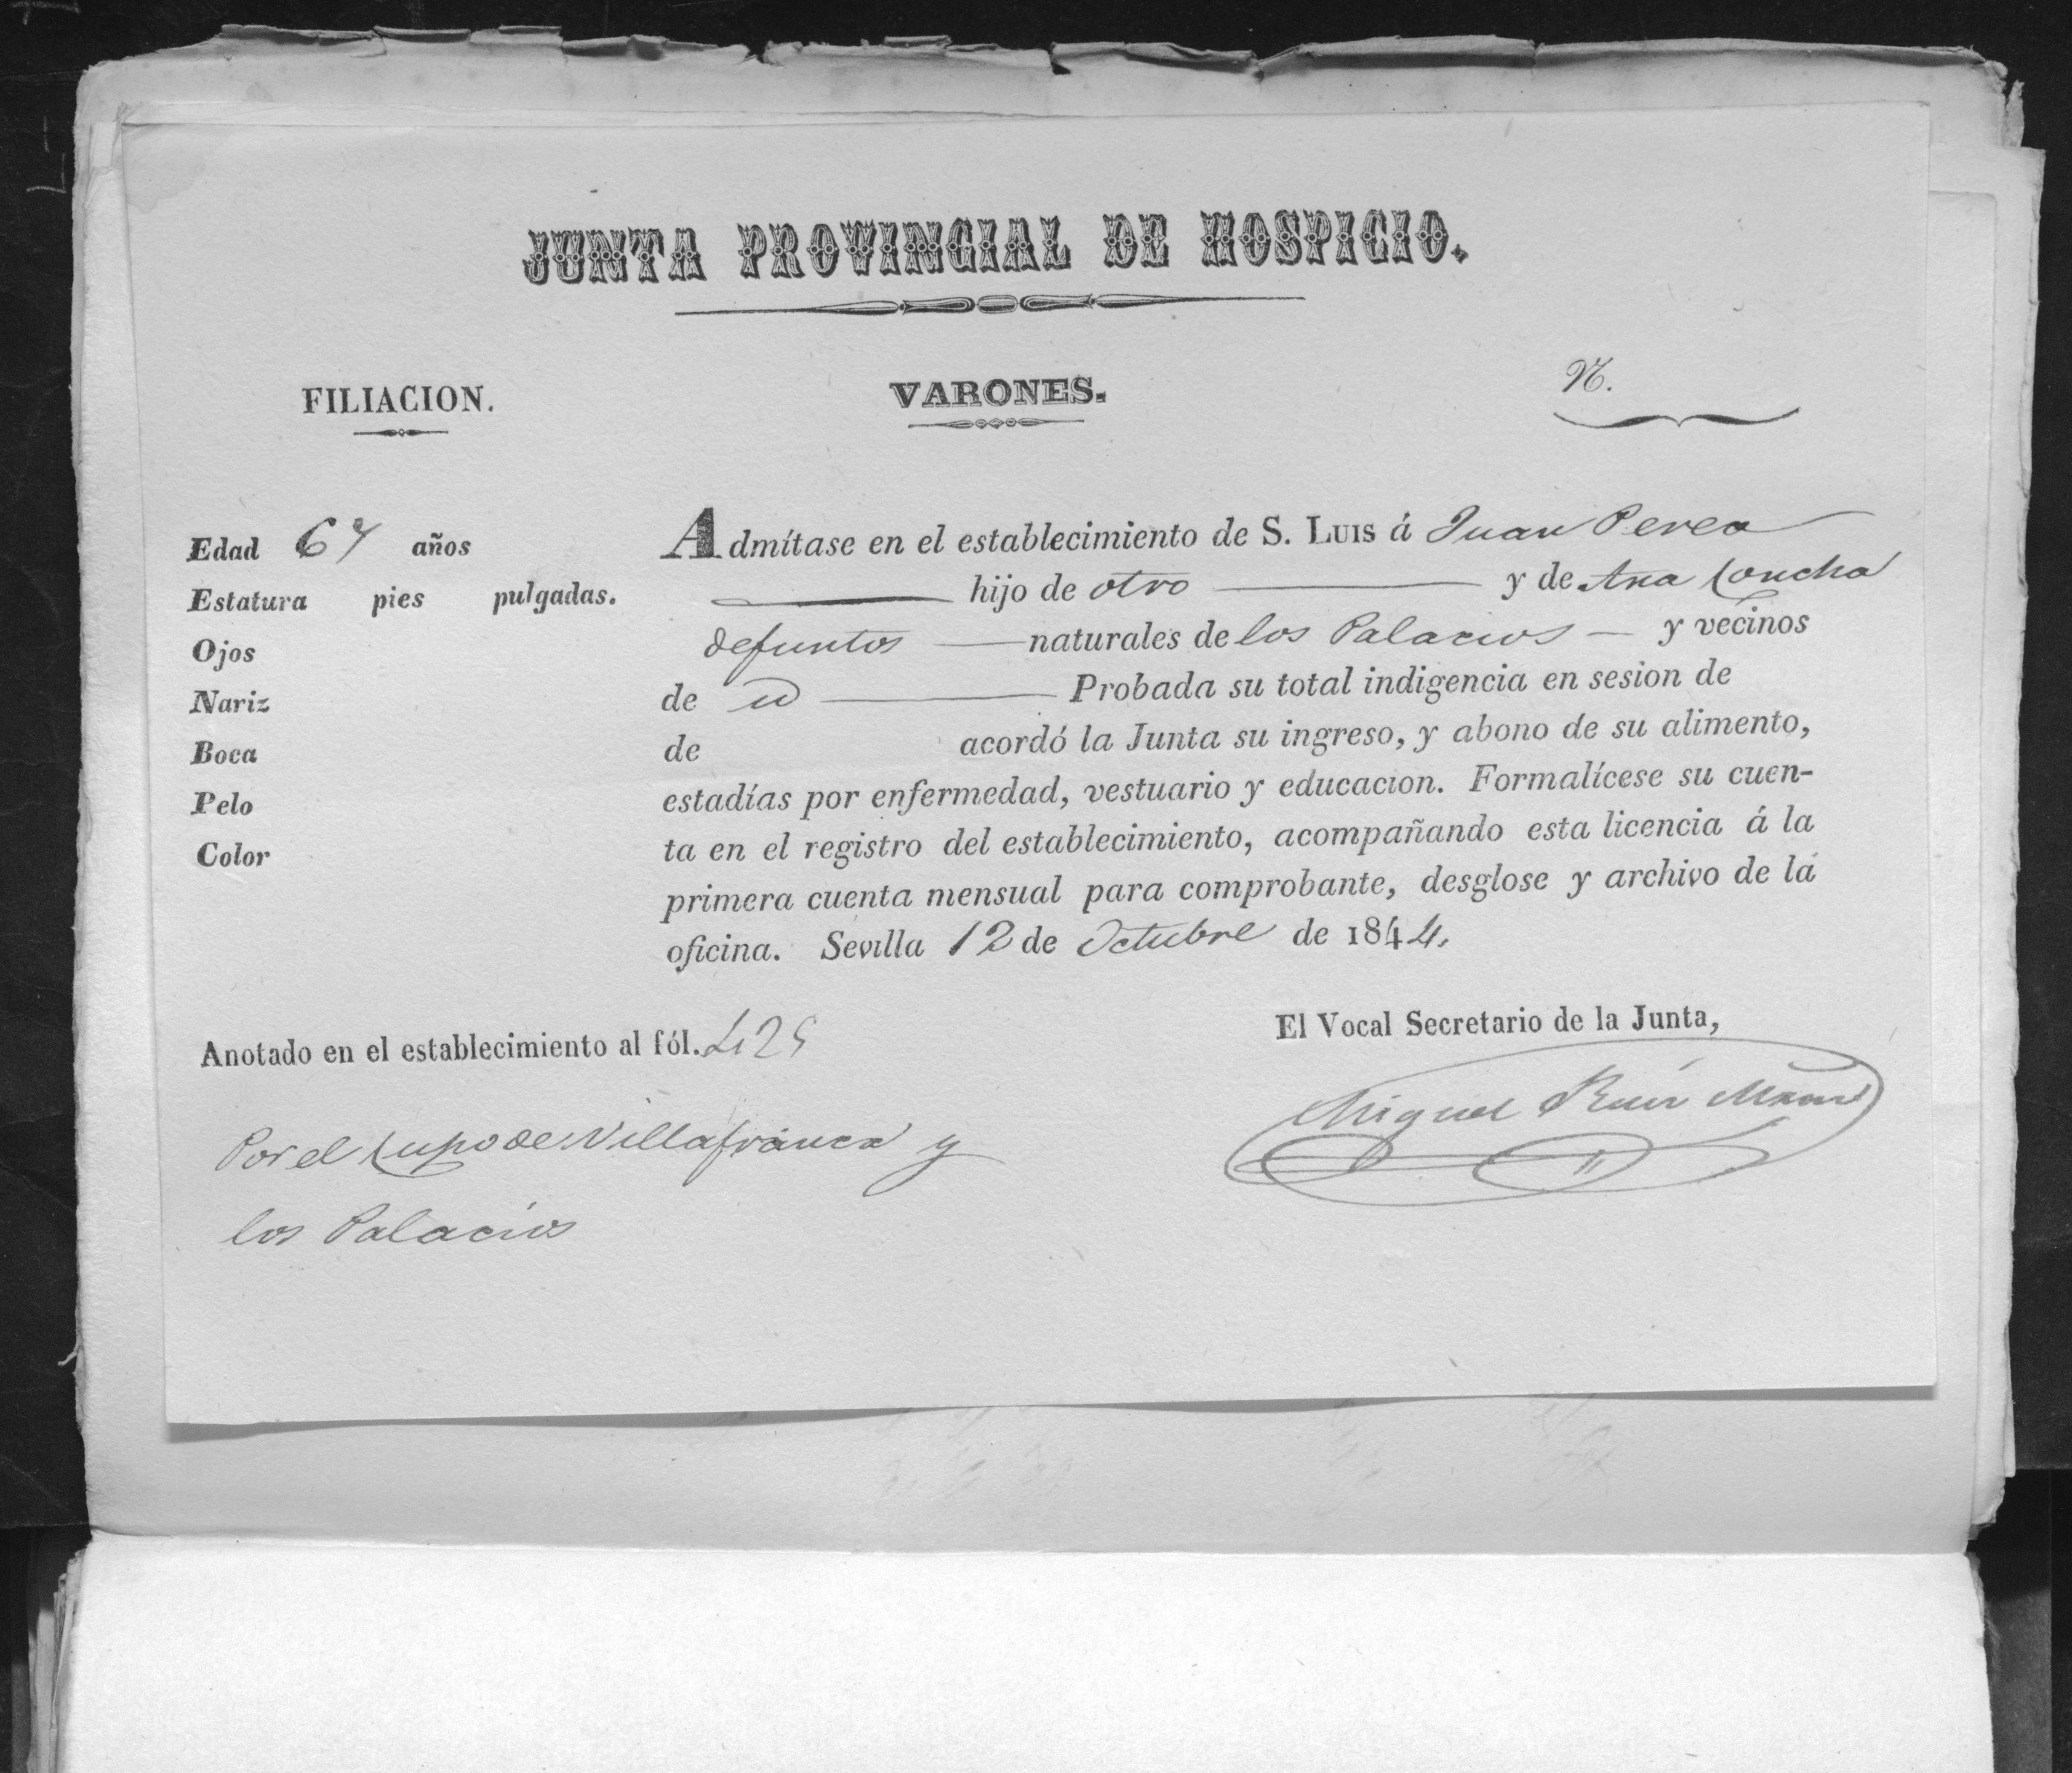 JUNTA PROVINCIAL DE HOSPICIO.
FILIACION.
VARONES.
N.
Edad 67 años
Estatura pies pulgadas.
Ojos
Nariz
Boca
Pelo
Color
Admítase en el establecimiento de S. LUIS á Juan Perea
hijo de otro y de Ana Concha
defuntos naturales de los Palacios y vecinos
de id Probada su total indigencia en sesion de
de acordó la Junta su ingreso, y abono de su alimento,
estadías por enfermedad, vestuario y educacion. Formalícese su cuen-
ta en el registro del establecimiento, acompañando esta licencia á la
primera cuenta mensual para comprobante, desglose y archivo de la
oficina. Sevilla 12 de Octubre de 1844.
Anotado en el establecimiento al fól. 425
El Vocal Secretario de la Junta,
Miguel Ruiz
Por el Cupo de Villafranca y
los Palacios